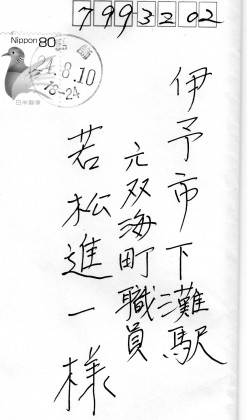 7993202
Nippon 80
日本郵便
21.8.10
18-24
伊予市下灘駅
元双海町職員
若松進一様